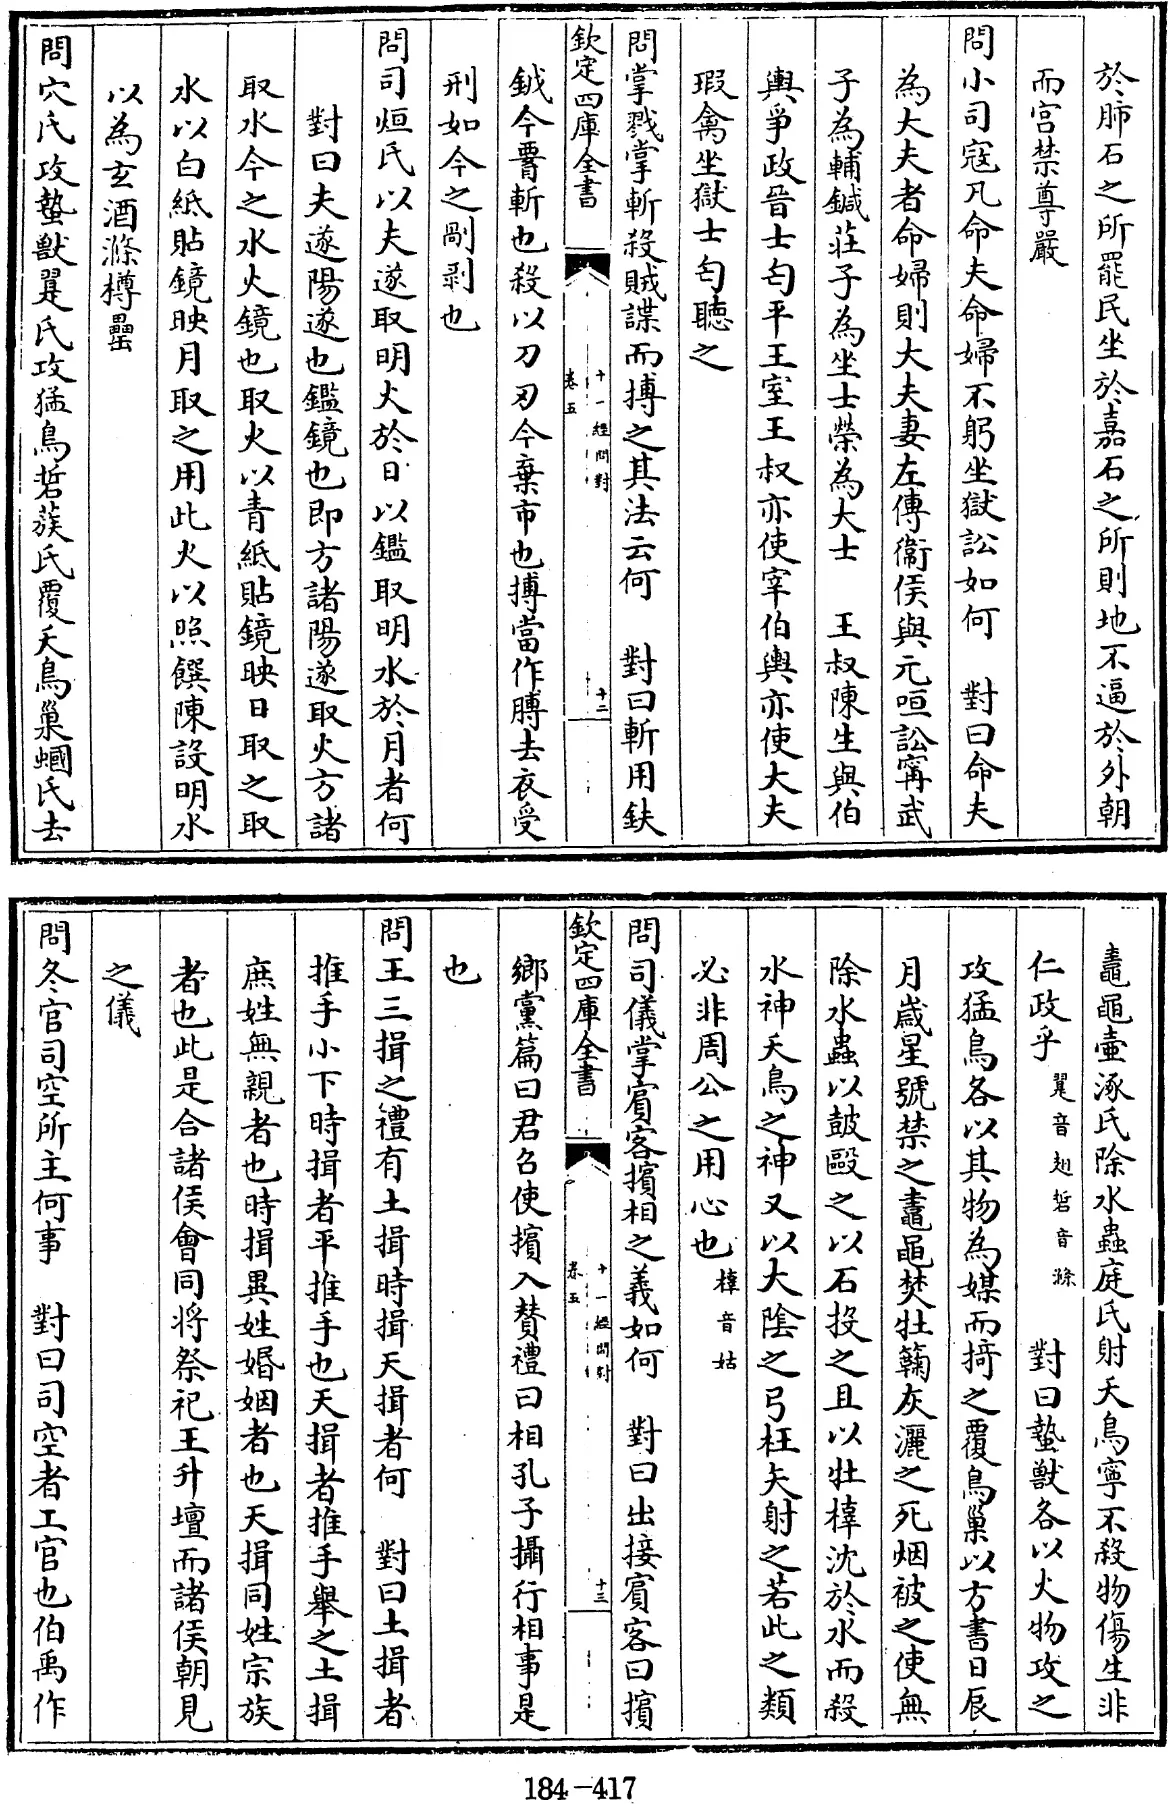 於肺石之所罷民坐於嘉石之所則地不逼於外朝
而宫禁尊嚴
問小司寇凡命夫命婦不躬坐獄訟如何　對曰命夫
為大夫者命婦則大夫妻左傳衞侯與元咺訟甯武
子為輔鍼莊子為坐士榮為大士　王叔陳生與伯
輿爭政晉士匄平王室王叔亦使宰伯輿亦使大夫
瑕禽坐獄士匄聽之
問掌戮掌斬殺賊諜而搏之其法云何　對曰斬用鈇
欽定四庫全書
十一經問對
卷五
十二
鉞今腰斬也殺以刀刃今棄市也搏當作膊去衣受
刑如今之剮剥也
問司烜氏以夫遂取明火於日以鑑取明水於月者何
對曰夫遂陽遂也鑑鏡也即方諸陽遂取火方諸
取水今之水火鏡也取火以青紙貼鏡映日取之取
水以白紙貼鏡映月取之用此火以照饌陳設明水
以為玄酒滌樽罍
問穴氏攻蟄獸翨氏攻猛鳥硩蔟氏覆夭鳥巢蟈氏去
鼃黽壷涿氏除水蟲庭氏射夭鳥寧不殺物傷生非
仁政乎翨音翅硩音滌　對曰蟄獸各以火物攻之
攻猛鳥各以其物為媒而掎之覆鳥巢以方書日辰
月歲星號禁之鼃黽焚牡蘜灰灑之死烟被之使無
除水蟲以鼓毆之以石投之且以牡橭沈於水而殺
水神夭鳥之神又以大陰之弓枉矢射之若此之類
必非周公之用心也橭音姑
問司儀掌賔客擯相之義如何　對曰出接賔客曰擯
欽定四庫全書
十一經問對
卷五
十三
鄉黨篇曰君召使擯入賛禮曰相孔子攝行相事是
也
問王三揖之禮有土揖時揖天揖者何　對曰土揖者
推手小下時揖者平推手也天揖者推手舉之土揖
庶姓無親者也時揖異姓婚姻者也天揖同姓宗族
者也此是合諸侯會同将祭祀王升壇而諸侯朝見
之儀
問冬官司空所主何事　對曰司空者工官也伯禹作
184-417